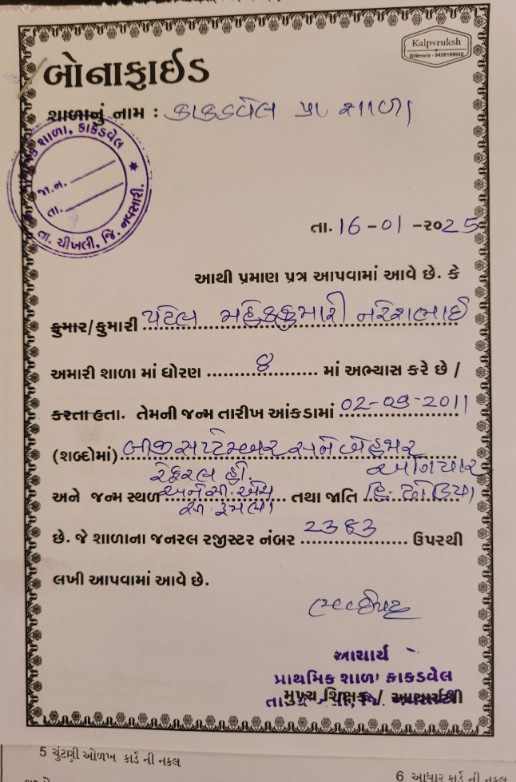 Kalpvruksh
બોનાફાઈડ
શાળાનું નામ : કાકડવેલ પ્રા શાળા
શાળા, કાકડવેલ
જા.ન.
તા.
તા. ચીખલી, જિ. નવસારી.
તા. 16-01-૨૦25
આથી પ્રમાણ પત્ર આપવામાં આવે છે. કે
કુમાર/કુમારી પટેલ મહેકકુમારી નરેશભાઈ
અમારી શાળા માં ધોરણ ૪ માં અભ્યાસ કરે છે /
કરતા હતા. તેમની જન્મ તારીખ આંકડામાં 02-09-2011
(શબ્દોમાં) બીજી સપ્ટેમ્બર સને બેહજાર
અગિયાર
રેફરલ હો.
અને જન્મ સ્થળ તથા જાતિ હિ. ધોડિયા
છે. જે શાળાના જનરલ રજીસ્ટર નંબર 2383 ઉપરથી
લખી આપવામાં આવે છે.
આચાર્ય
પ્રાથમિક શાળા કાકડવેલ
મુખ્ય શિક્ષક / આચાર્યશ્રી
5 ચુંટણી ઓળખ કાર્ડ ની નકલ
6 આધાર કાર્ડ ની નકલ